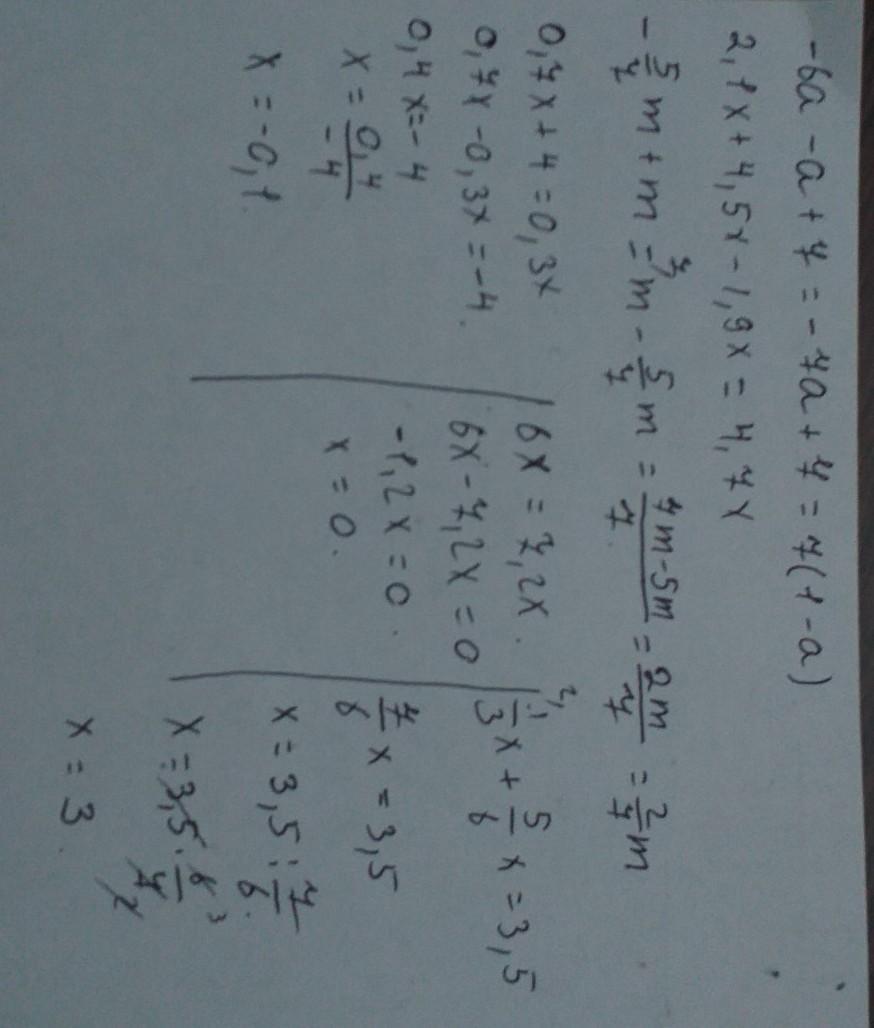 -6a - a + 7 = -7a + 7 = 7(1-a)
2,1x + 4,5x - 1,9x = 4,7x
-5/7 m + m = ⁷⁾m - 5/7 m = (7m-5m)/7 = 2m/7 = 2/7 m
0,7x + 4 = 0,3x
0,7x - 0,3x = -4.
0,4x = -4
x = 0,4/-4
x = -0,1.
6x = 7,2x.
6x - 7,2x = 0
-1,2x = 0.
x = 0.
²⁾1/3 x + 5/6 x = 3,5
7/6 x = 3,5
x = 3,5 : 7/6.
x = 3,5 · 6/7
x = 3